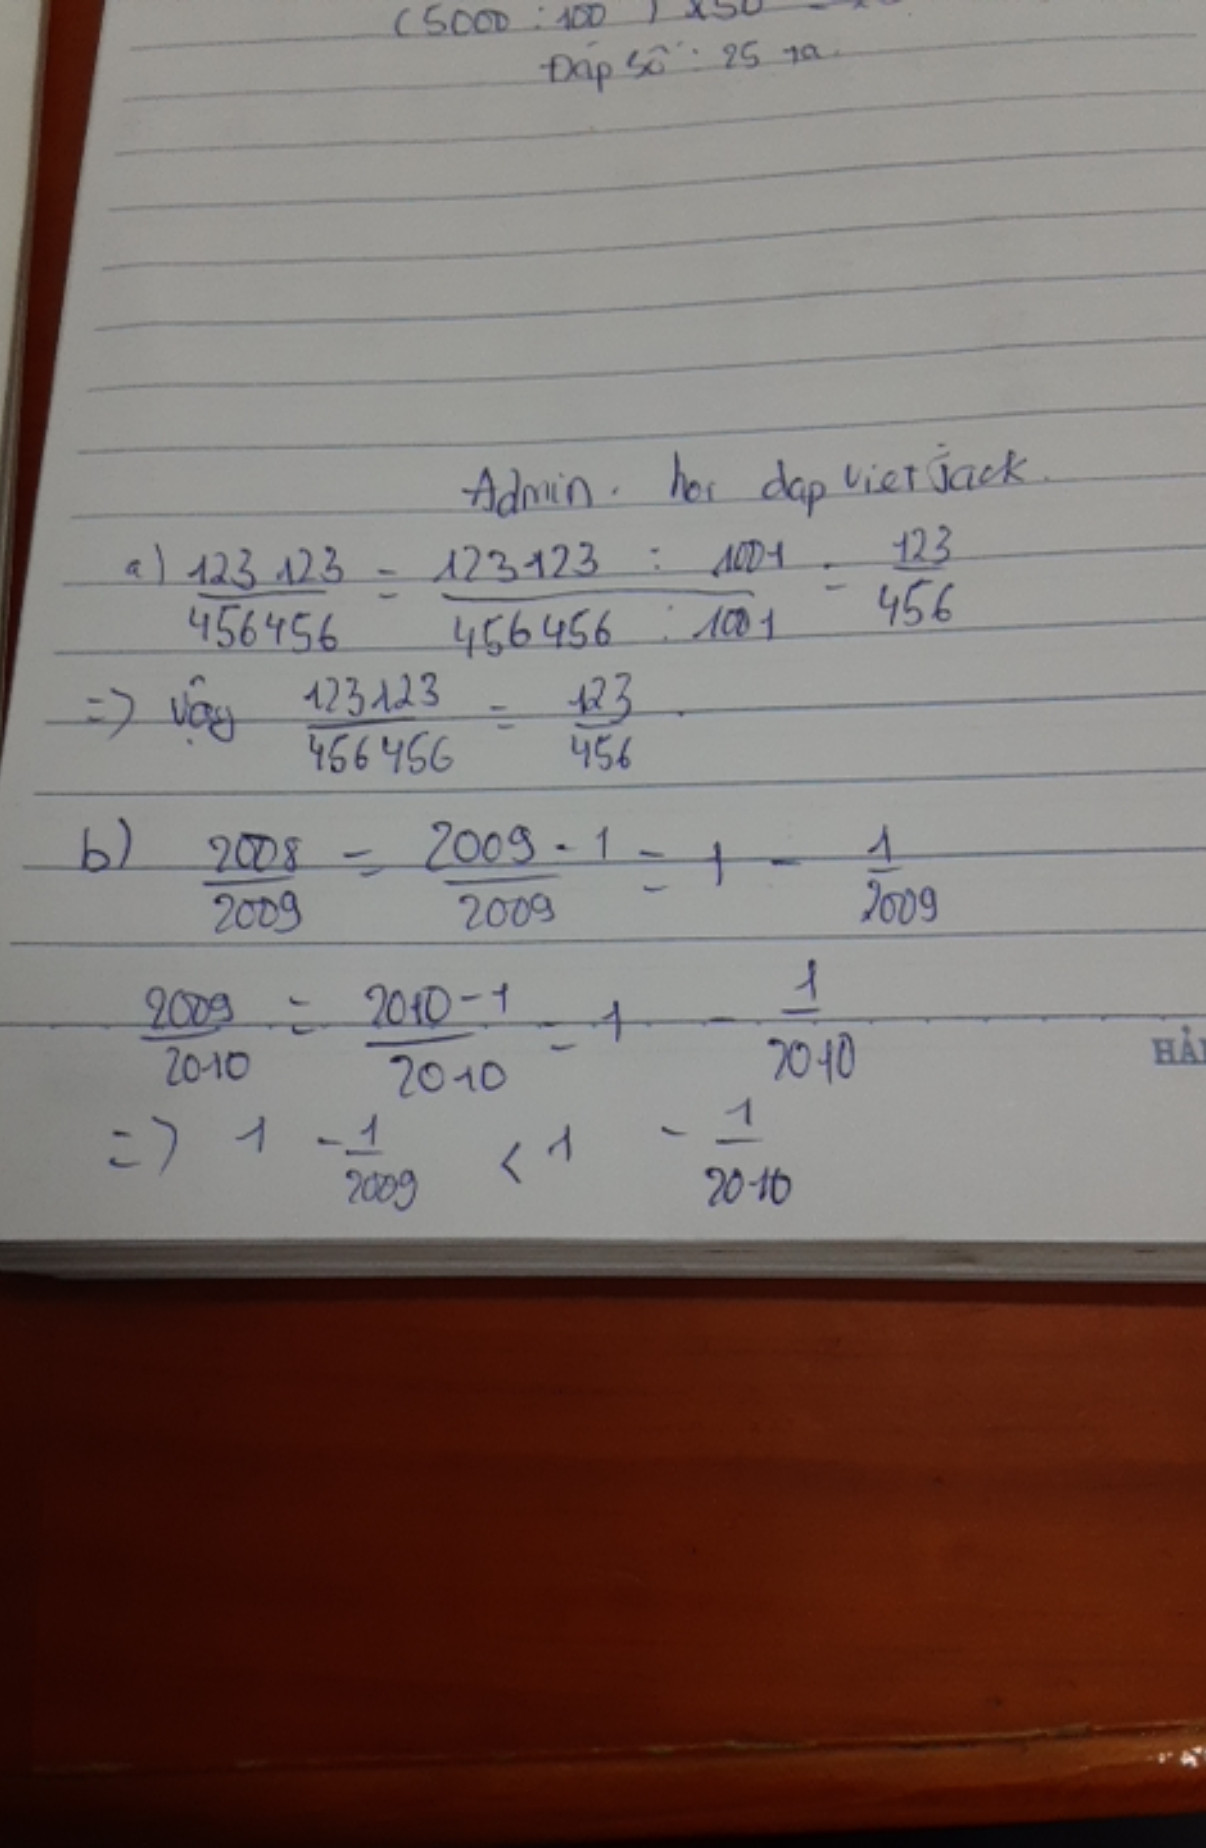 (5000 : 100) x50
Đáp số : 25
Admin. hoi dap vietjack.
a) 123 123 / 456456 = 123123 : 1001 / 456 456 : 1001 = 123 / 456
=> vậy 123123 / 456 456 = 123 / 456 .
b) 2008 / 2009 = 2009 - 1 / 2009 = 1 - 1 / 2009
2009 / 2010 = 2010 - 1 / 2010 = 1 - 1 / 2010
HẢI
=> 1 - 1 / 2009 < 1 - 1 / 2010